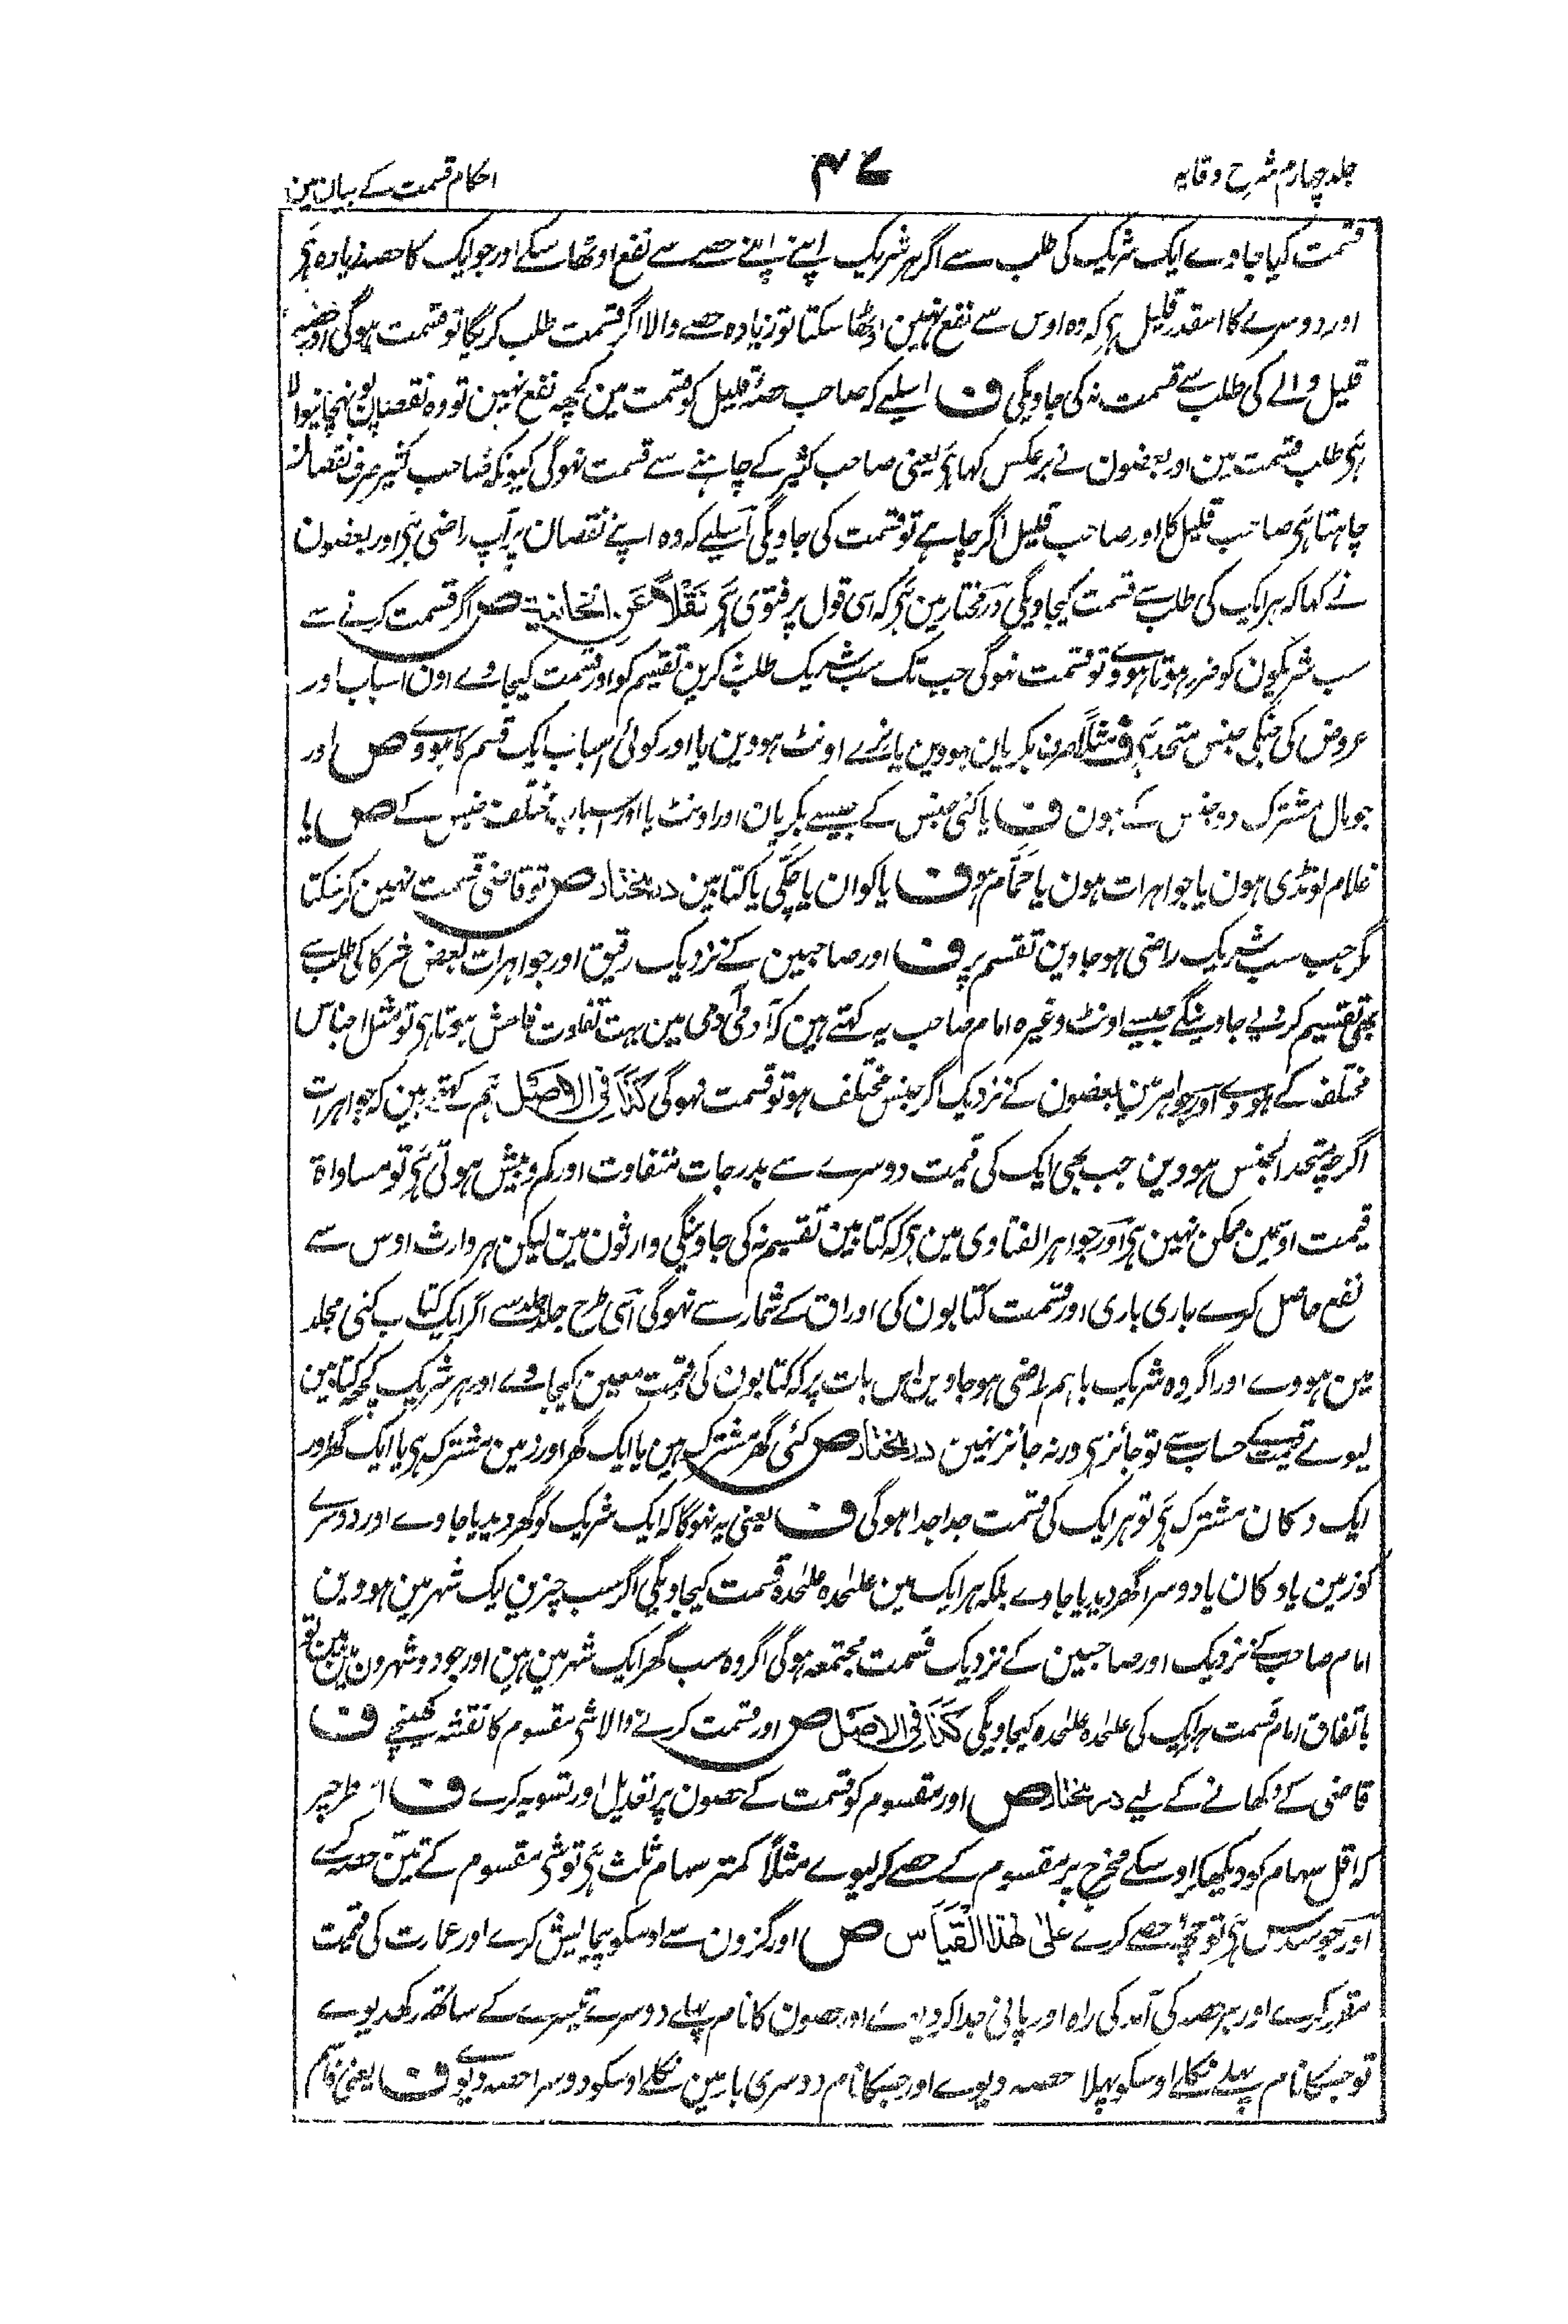 جلد چہارم شرح وقایہ
۴۷
احکام قسمت کے بیان مین
قسمت کیا جاوے ایک شریک کی طلب سے اگر ہر شریک اپنے اپنے حصے سے نفع اوٹھا سکے اور جو ایک کا حصہ زیادہ ہَی
اور دوسرے کا اسقدر قلیل ہَی کہ وہ اوس سے نفع نہین اوٹھا سکتا تو زیادہ حصے والا اگر قسمت طلب کریگا تو قسمت ہوگی اور حصہ
قلیل والے کی طلب سے قسمت نہ کی جاویگی ف اسلیے کہ صاحب حصۂ قلیل کو قسمت مین کچھ نفع نہین تو وہ نقصان پہونچانیوالا
ہَی طلب قسمت مین اور بعضون نے برعکس کہا ہَی یعنی صاحب کثیر کے چاہنے سے قسمت نہوگی کیونکہ صاحب کثیر صرف نقصان
چاہتا ہَی صاحب قلیل کا اور صاحب قلیل اگر چاہے تو قسمت کی جاویگی اسلیے کہ وہ اپنے نقصان پر آپ راضی ہَی اور بعضون
نے کہا کہ ہر ایک کی طلب سے قسمت کیجاویگی درمختار مین ہَی کہ اسی قول پر فتوی ہَی نَقْلاً عَنِ الخانیۃ ص اگر قسمت کرنے سے
سب شریکون کو ضرر ہوتا ہووے تو قسمت نہوگی جب تک سب شریک طلب نکرین تقسیم کو اور قسمت کیجاوے اون اسباب اور
عروض کی جنکی جنس متحد ہَی ف مثلاً صرف بکریان ہووین یا نرے اونٹ ہووین یا اور کوئی اسباب ایک قسم کا ہووے ص اور
جو مال مشترک دو جنس کے ہون ف یا کئی جنس کے جیسے بکریان اور اونٹ یا اور اسباب مختلف جنس کے ص یا
غلام لونڈی ہون یا جواہرات ہون یا حمَّام ہو ف یا کوان یا چکّی یا کتابین درمختار ص تو قاضی قسمت نہین کر سکتا
مگر جب سب شریک راضی ہو جاوین تقسم پر ف اور صاحبین کے نزدیک رقیق اور جواہرات بعض شرکا کی طلب سے
بھی تقسیم کردیے جاوینگے جیسے اونٹ وغیرہ امام صاحب یہ کہتے ہین کہ آدمی آدمی مین بہت تفاوت فاحش ہوتا ہَی تو مثل اجناس
مختلف کے ہووے اور جواہر مین بعضون کے نزدیک اگر جنس مختلف ہو تو قسمت نہوگی کَذَا فِی الاَصْل ہم کہتے ہین کہ جواہرات
اگرچہ متحد الجنس ہووین جب بھی ایک کی قیمت دوسرے سے بدرجات متفاوت اور کم و بیش ہوتی ہَی تو مساواۃ
قیمت اونمین ممکن نہین ہَی اور جواہر الفتاوی مین ہَی کہ کتابین تقسیم نہ کی جاوینگی وارثون مین لیکن ہر وارث اوس سے
نفع حاصل کرے باری باری اور قسمت کتابون کی اوراق کے شمار سے نہوگی اسی طرح جلد جلد سے اگر ایک کتاب کئی مجلد
مین ہووے اور اگر وہ شریک باہم راضی ہو جاوین اس بات پر کہ کتابون کی قیمت معین کیجاوے اور ہر شریک کچھ کتابین
لیوے قیمت کے حساب سے تو جائز ہَی ورنہ جائز نہین درمختار ص کئی گھر مشترک ہین یا ایک گھر اور زمین مشترک ہَی یا ایک گھر اور
ایک دکان مشترک ہَی تو ہر ایک کی قسمت جدا جدا ہوگی ف یعنی یہ نہوگا کہ ایک شریک کو گھر دیدیا جاوے اور دوسرے
کو زمین یا دکان یا دوسرا گھر دیدیا جاوے بلکہ ہر ایک مین علٰحدہ علٰحدہ قسمت کیجاویگی اگر سب چیزین ایک شہر مین ہووین
امام صاحب کے نزدیک اور صاحبین کے نزدیک قسمت مجتمعہ ہوگی اگر وہ سب گھر ایک شہر مین ہین اور جو دو شہرون مین ہین تو
باتفاق امام قسمت ہر ایک کی علٰحدہ علٰحدہ کیجاویگی کَذَا فِی الاَصْل ص اور قسمت کرنے والا شی مقسوم کا نقشہ کھینچے ف
قاضی کے دکھانے کے لیے درمختار ص اور مقسوم کو قسمت کے حصون پر تعدیل اور تسویہ کرے ف اس طرح پر
کہ اقل سہام کو دیکھکر اوسکے مخرج پر مقسوم کے حصے کر لیوے مثلاً کمتر سہام ثلث ہَی تو شی مقسوم کے تین حصہ کرے
اور جو سدس ہَی تو چھ حصے کرے عَلیٰ ھٰذا الْقِیَاس ص اور گزون سے اوسکو پیمایش کرے اور عمارت کی قیمت
مقرر کرے اور ہر حصہ کی آمد کی راہ اور پانی جدا کر دیوے اور حصون کا نام پہلے دوسرے تیسرے کے ساتھ رکھدیوے
تو جسکا نام پہلے نکلے اوسکو پہلا حصہ دیوے اور جسکا نام دوسری بار مین نکلے اوسکو دوسرا حصہ دیوے ف یعنی قاسم